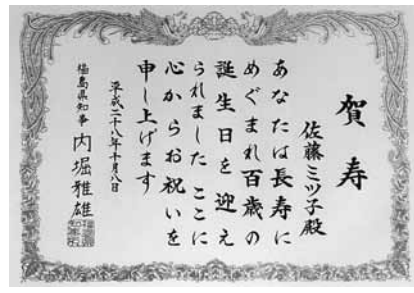 賀寿
佐藤ミツ子殿
あなたは長寿に
めぐまれ百歳の
誕生日を迎え
られました ここに
心からお祝いを
申し上げます
平成二十八年十月八日
福島県知事 内堀雅雄